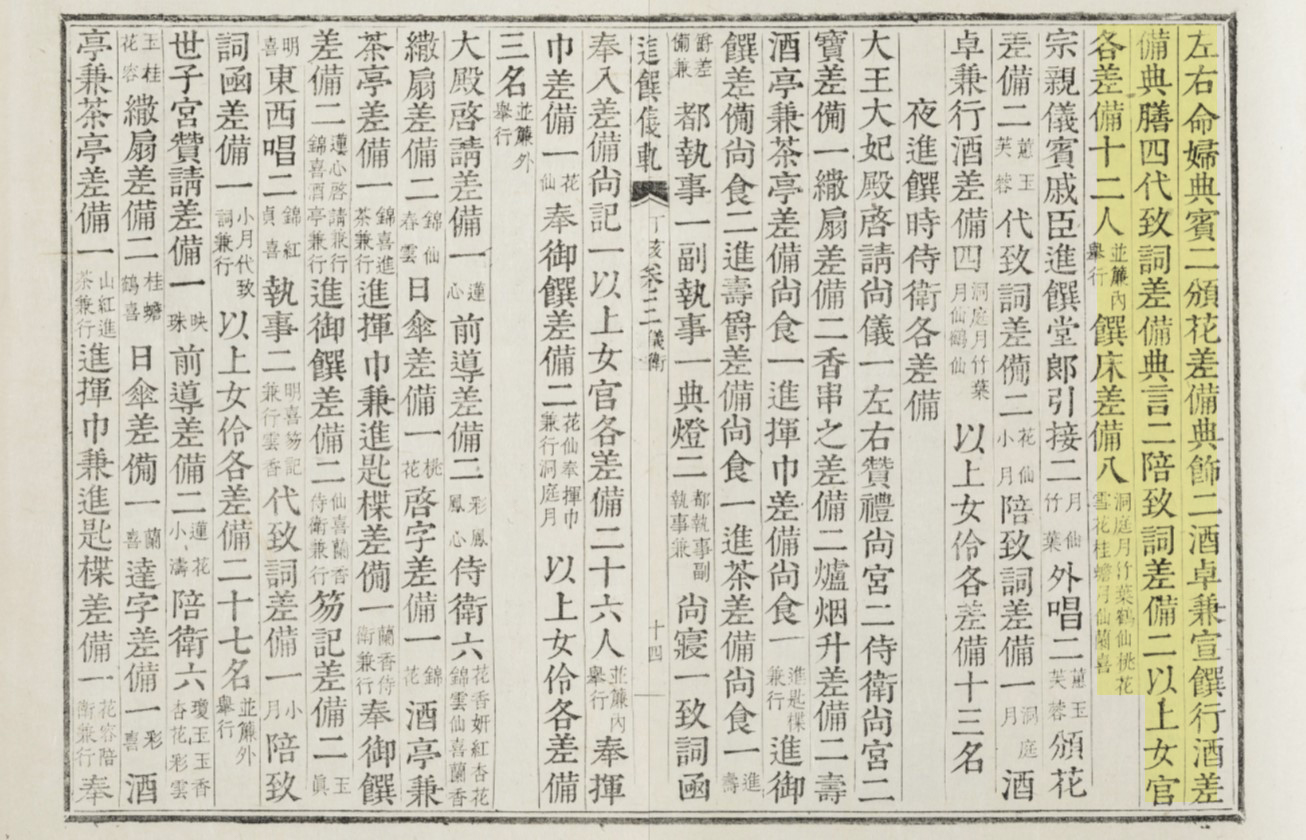 左右命婦典賓二頒花差備典飾二酒卓兼宣饌行酒差
備典膳四代致詞差備典言二陪致詞差備二以上女官
各差備十二人並簾內擧行饌床差備八洞庭月竹葉鶴仙桃花雪花桂蟾月仙蘭喜
宗親儀賓戚臣進饌堂郞引接二月仙竹葉外唱二蕙玉芙蓉頒花
差備二蕙玉芙蓉代致詞差備二花仙小月陪致詞差備一洞庭月酒
卓兼行酒差備四洞庭月竹葉月仙鶴仙以上女伶各差備十三名
夜進饌時侍衛各差備
大王大妃殿啓請尙儀一左右贊禮尙宮二侍衛尙宮二
寶差備一繖扇差備二香串之差備二爐烟升差備二壽
酒亭兼茶亭差備尙食一進揮巾差備尙食一進匙楪兼行進御
饌差備尙食二進壽爵差備尙食一進茶差備尙食一進壽
爵差備兼都執事一副執事一典燈二都執事副執事兼尙寢一致詞函
進饌儀軌 丁亥 卷二 儀衛 十四
奉入差備尙記一以上女官各差備二十六人並簾內擧行奉揮
巾差備一花仙奉御饌差備二花仙奉揮巾兼行洞庭月以上女伶各差備
三名並簾外擧行
大殿啓請差備一蓮心前導差備二彩鳳鳳心侍衛六花香姸紅杏花錦雲仙喜蘭香
繖扇差備二錦仙春雲日傘差備一桃花啓字差備一錦花酒亭兼
茶亭差備一錦喜進茶兼行進揮巾兼進匙楪差備一蘭香侍衛兼行奉御饌
差備二蓮心啓請兼行錦喜酒亭兼行進御饌差備二仙喜蘭香侍衛兼行笏記差備二玉眞
明喜東西唱二錦紅貞喜執事二明喜笏記兼行雲香代致詞差備一小月陪致
詞函差備一小月代致詞兼行以上女伶各差備二十七名並簾外擧行
世子宮贊請差備一映珠前導差備二蓮花小濤陪衛六瓊玉玉香杏花彩雲
玉桂花容繖扇差備二桂蟾鶴喜日傘差備一蘭喜達字差備一彩喜酒
亭兼茶亭差備一山紅進茶兼行進揮巾兼進匙楪差備一花容陪衛兼行奉